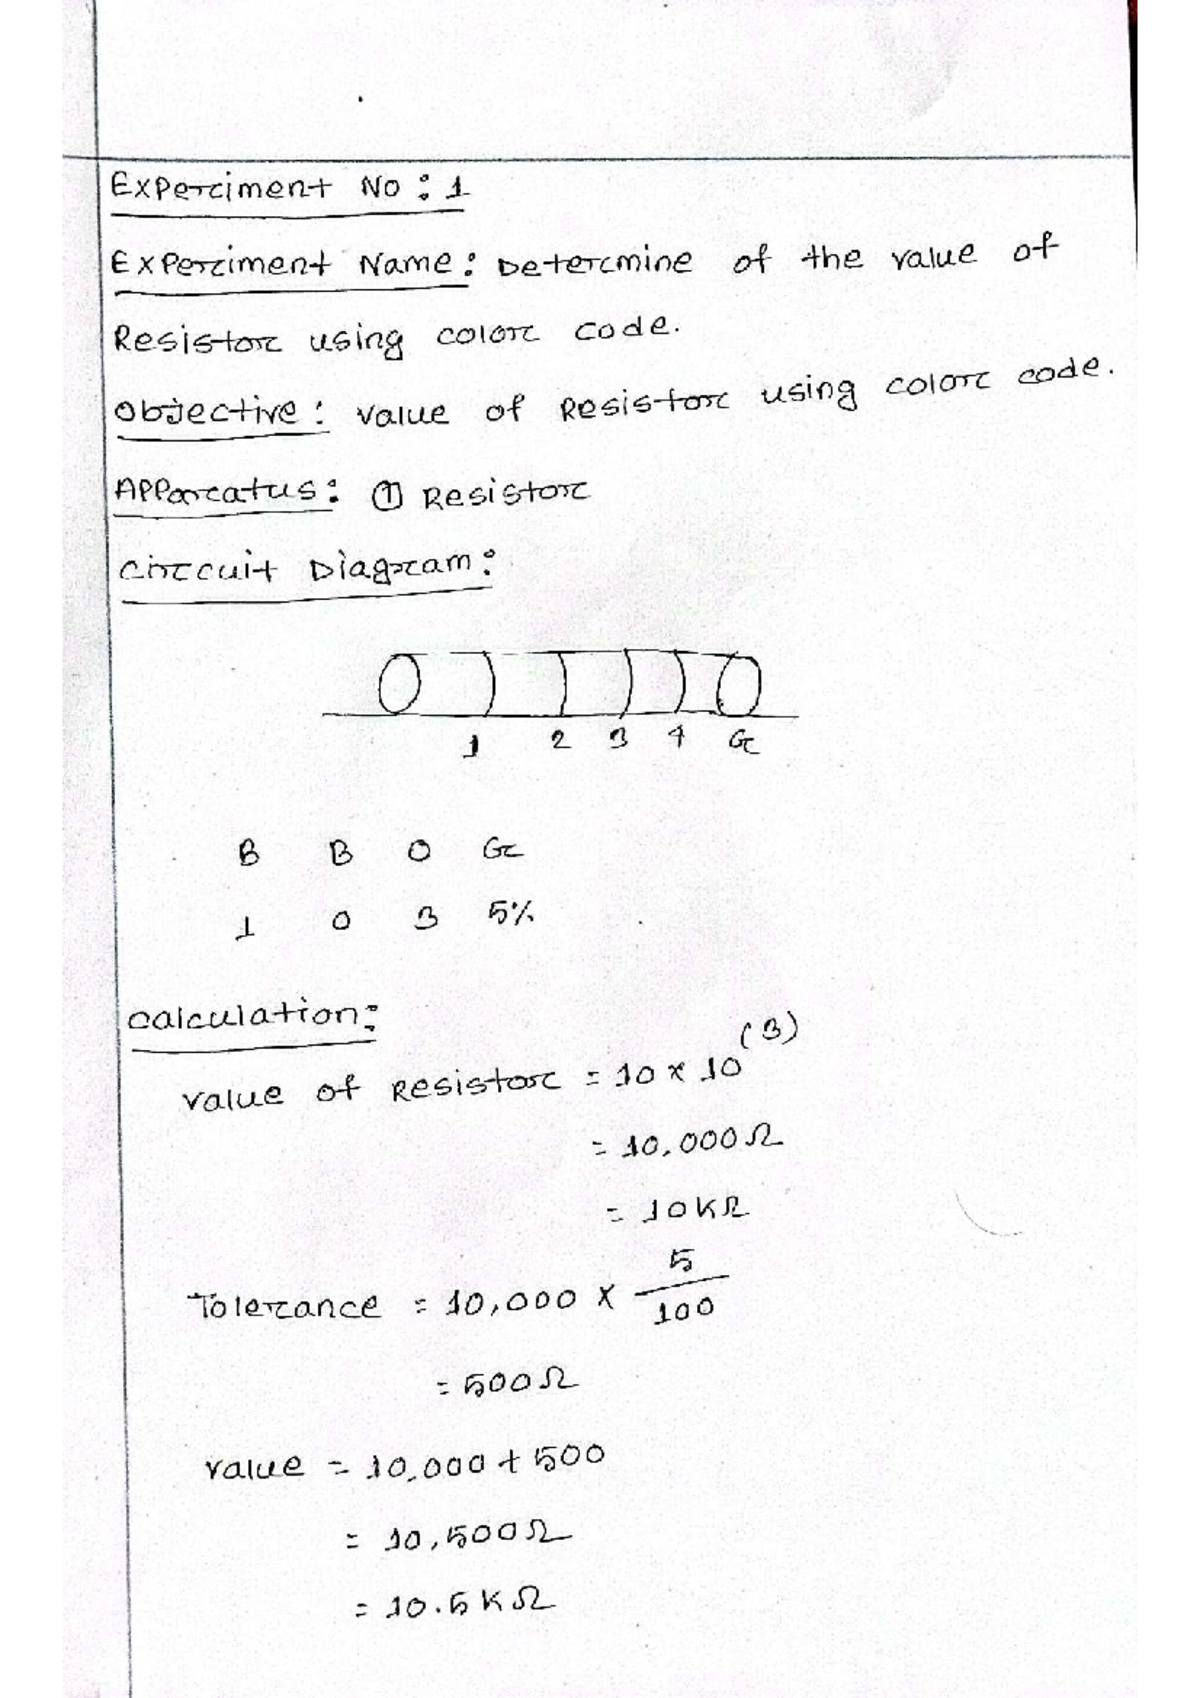 Experiment No : 1
Experiment Name : Determine of the value of
Resistor using color code.
Objective : value of Resistor using color code.
Apparatus : ① Resistor
Circuit Diagram :
1 2 3 4 G
B B O G
1 0 3 5%
Calculation :
value of Resistor = 10 × 10^(3)
= 10,000Ω
= 10KΩ
Tolerance = 10,000 × 5/100
= 500Ω
value = 10,000 + 500
= 10,500Ω
= 10.5KΩ